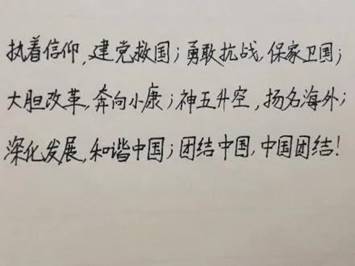 执着信仰,建党救国;勇敢抗战,保家卫国;
大胆改革,奔向小康;神五升空,扬名海外;
深化发展,和谐中国;团结中国,中国团结!